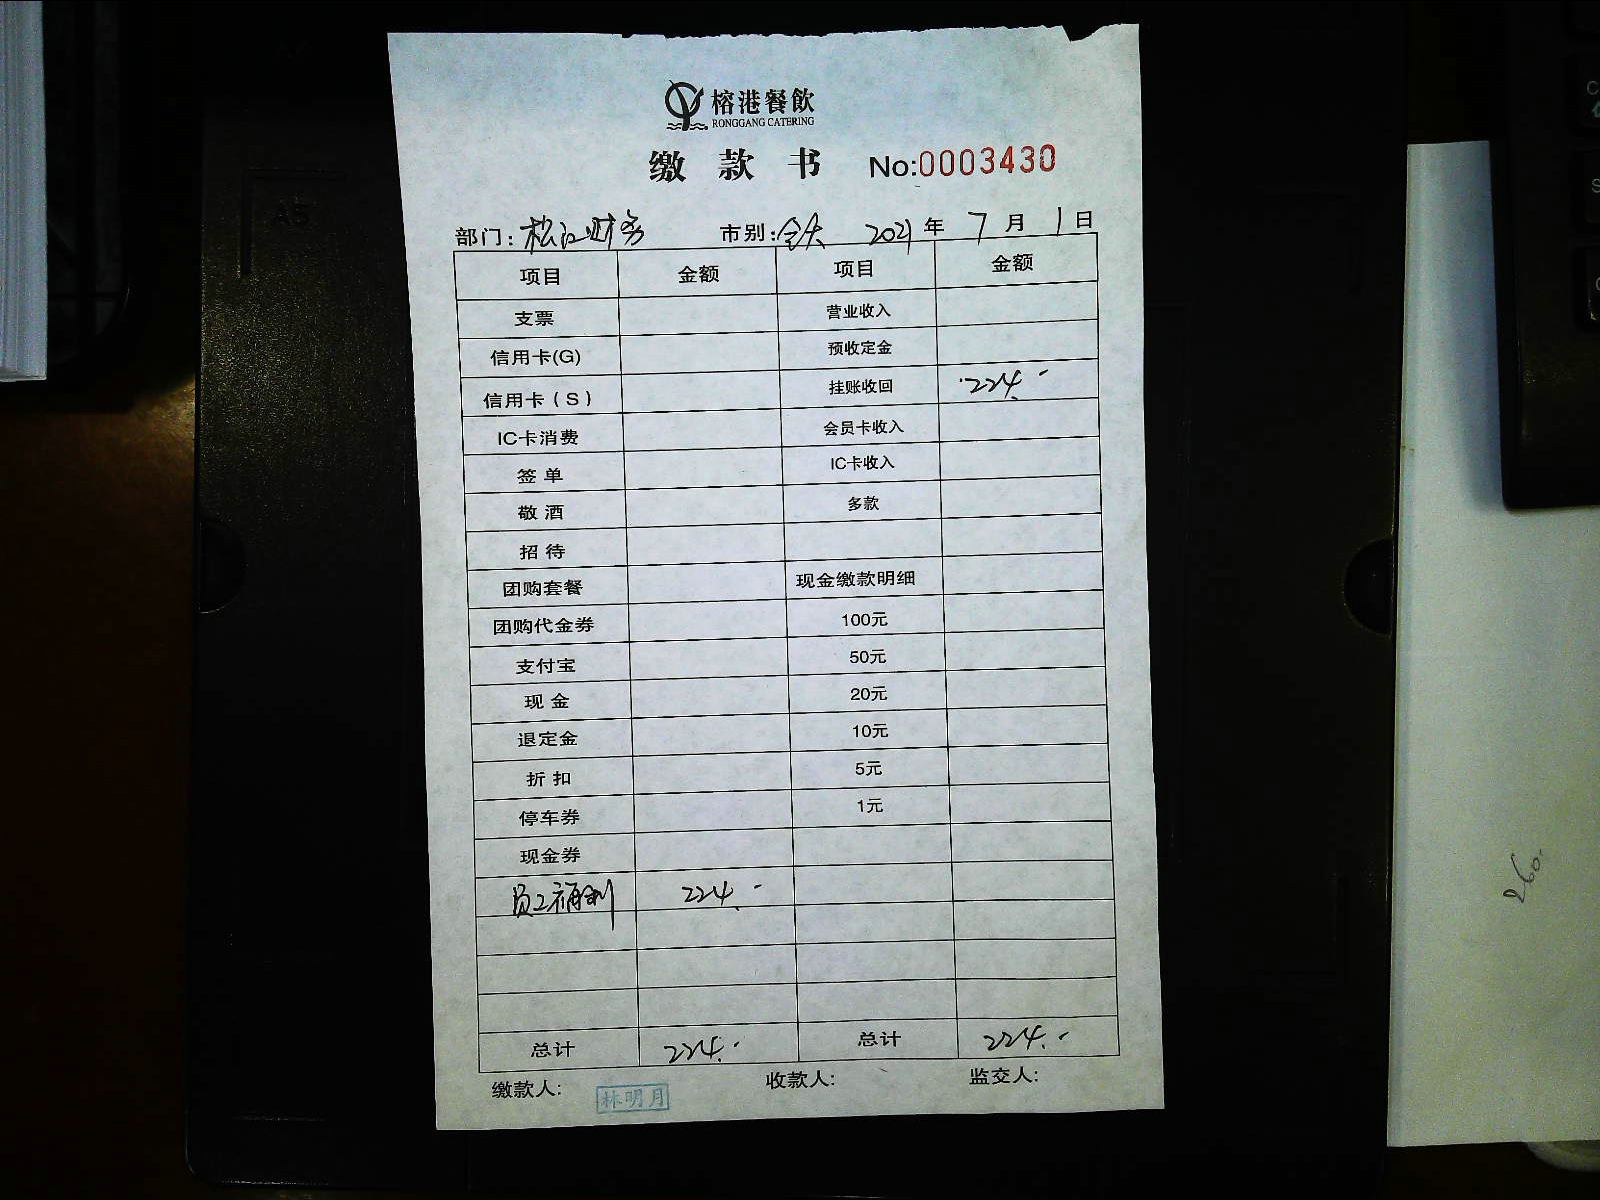 榕港餐飲
RONGGANG CATERING
缴 款 书 No:0003430
部门: 松江财务 市别: 全天 2021 年 7 月 1 日
项目 金额 项目 金额
支票 营业收入
信用卡(G) 预收定金
信用卡(S) 挂账收回 224.-
IC卡消费 会员卡收入
签 单 IC卡收入
敬 酒 多款
招 待
团购套餐 现金缴款明细
团购代金券 100元
支付宝 50元
现 金 20元
退定金 10元
折 扣 5元
停车券 1元
现金券
员工福利 224.-
总计 224.- 总计 224.-
缴款人: 林明月 收款人: 监交人:
260.